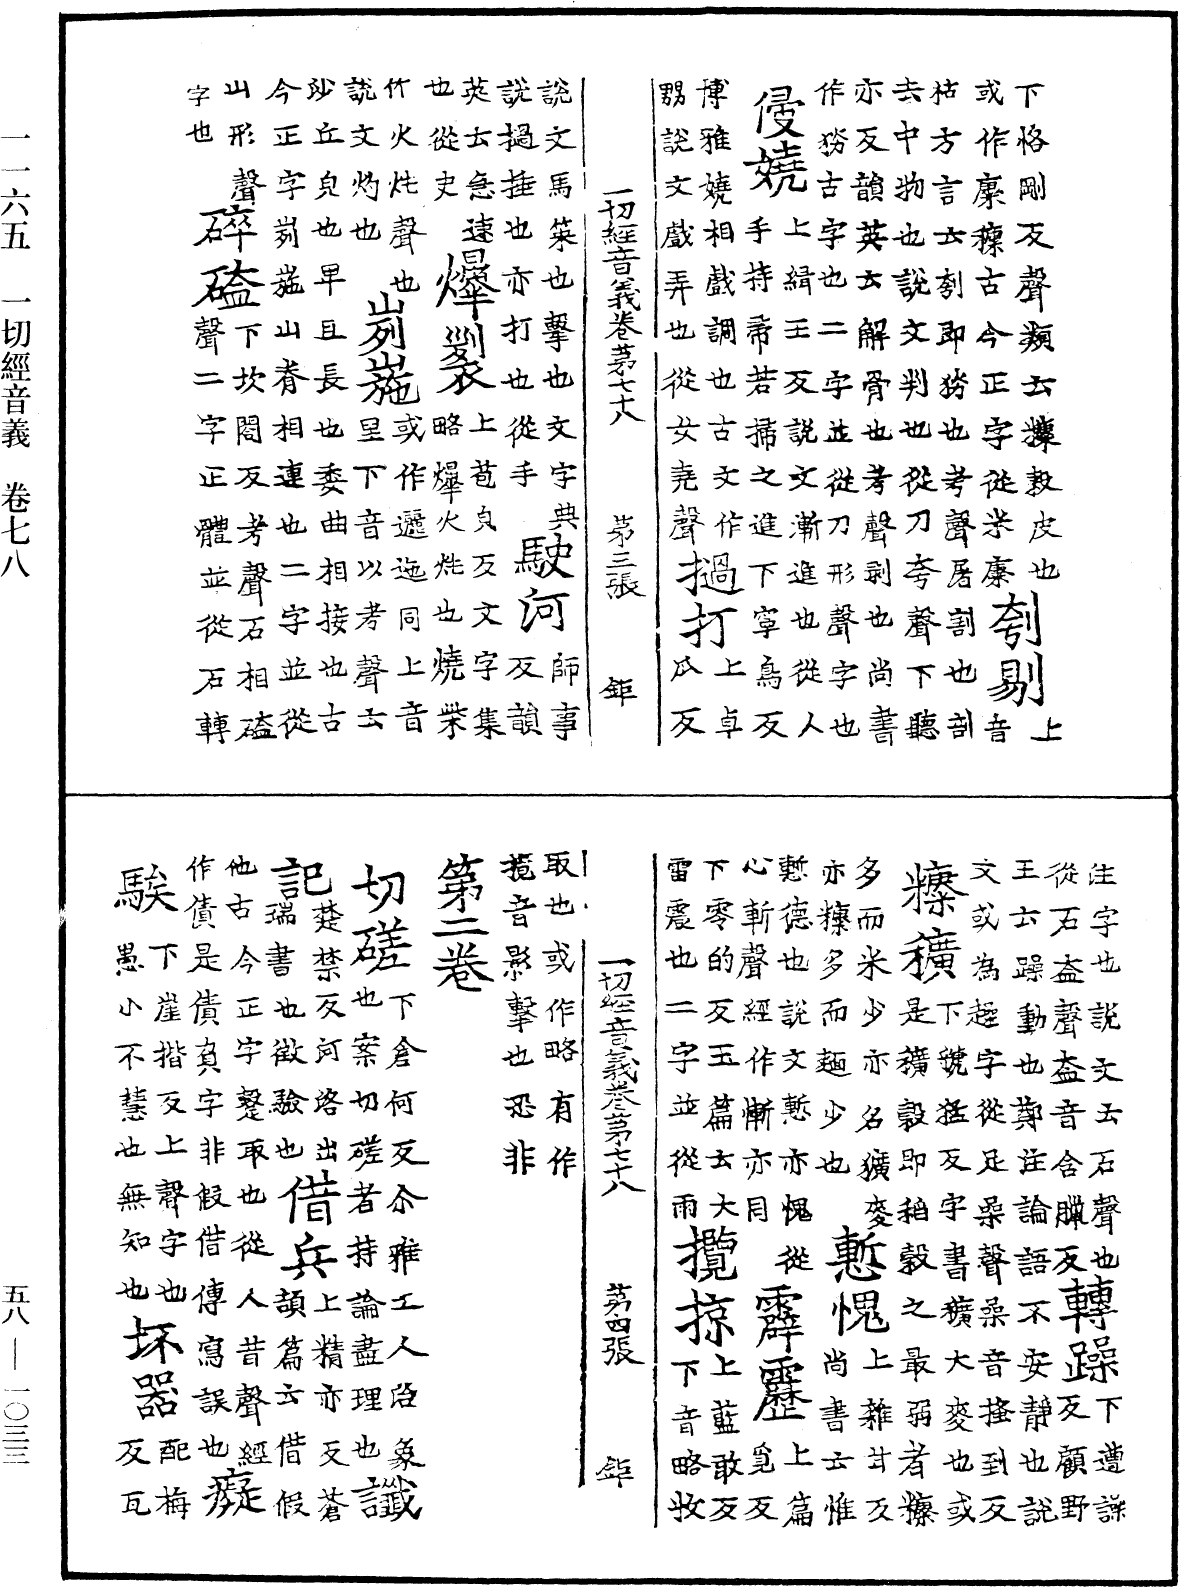 下恪剛反聲類云穅榖皮也
或作𥹺穅古今正字從米康刳剔上音
枯方言云刳即㓣也考聲屠割也剖
去中物也說文判也從刀夸聲下聽
亦反韻英云解骨也考聲剥也尚書
作㓣古字也二字並從刀形聲字也
侵嬈上緝壬反說文漸進也從人
手持帚若掃之進下寧鳥反
博雅嬈相戲調也古文作
嬲說文戲弄也從女堯聲撾打上卓瓜反
一切經音義卷第七十八 第三張 鉅
說文馬策也擊也文字典
說撾捶也亦打也從手駛河師事反韻
英云急速
也從史爆裂上苞皃反文字集略爆火烞也燒柴
竹火烞聲也
說文灼也峛崺或作邐迤同上音里下音以考聲云
沙丘皃也卑且長也委曲相接也古
今正字峛崺山脊相連也二字並從
山形聲
字也硨磕下坎閤反考聲石相磕聲二字正體並從石轉
注字也說文云石聲也
從石盍聲盍音含臘反轉躁下遭譟反顧野
王云躁動也鄭注論語不安靜也說
文或為趮字從足喿聲喿音搔到反
穅穬下虢猛反字書穬大麥也或
是穬榖即稻榖之最弱者穅
多而米少亦名穬麥
亦穅多而麵少也慙愧上雜甘反尚書云惟
慙德也說文慙亦愧從
心斬聲經作慚亦同霹靂上篇覓反
下零的反玉篇云大
雷震也二字並從雨攬掠上藍敢反下音略收
一切經音義卷第七十八 第四張 鉅
取也或作略有作
㨫音影擊也恐非
第二卷
切磋下倉何反尒雅工人治象
也案切磋者持論盡理也讖
記楚禁反河洛出
瑞書也徵驗也借兵上精亦反蒼頡篇云借假
他古今正字㩅取也從人昔聲經
作債是債負字非假借傳寫誤也癡
騃下崖揩反上聲字也
愚小不慧也無知也坏器配梅反瓦
一一六五 一切經音義 卷七八
五八—一〇三三